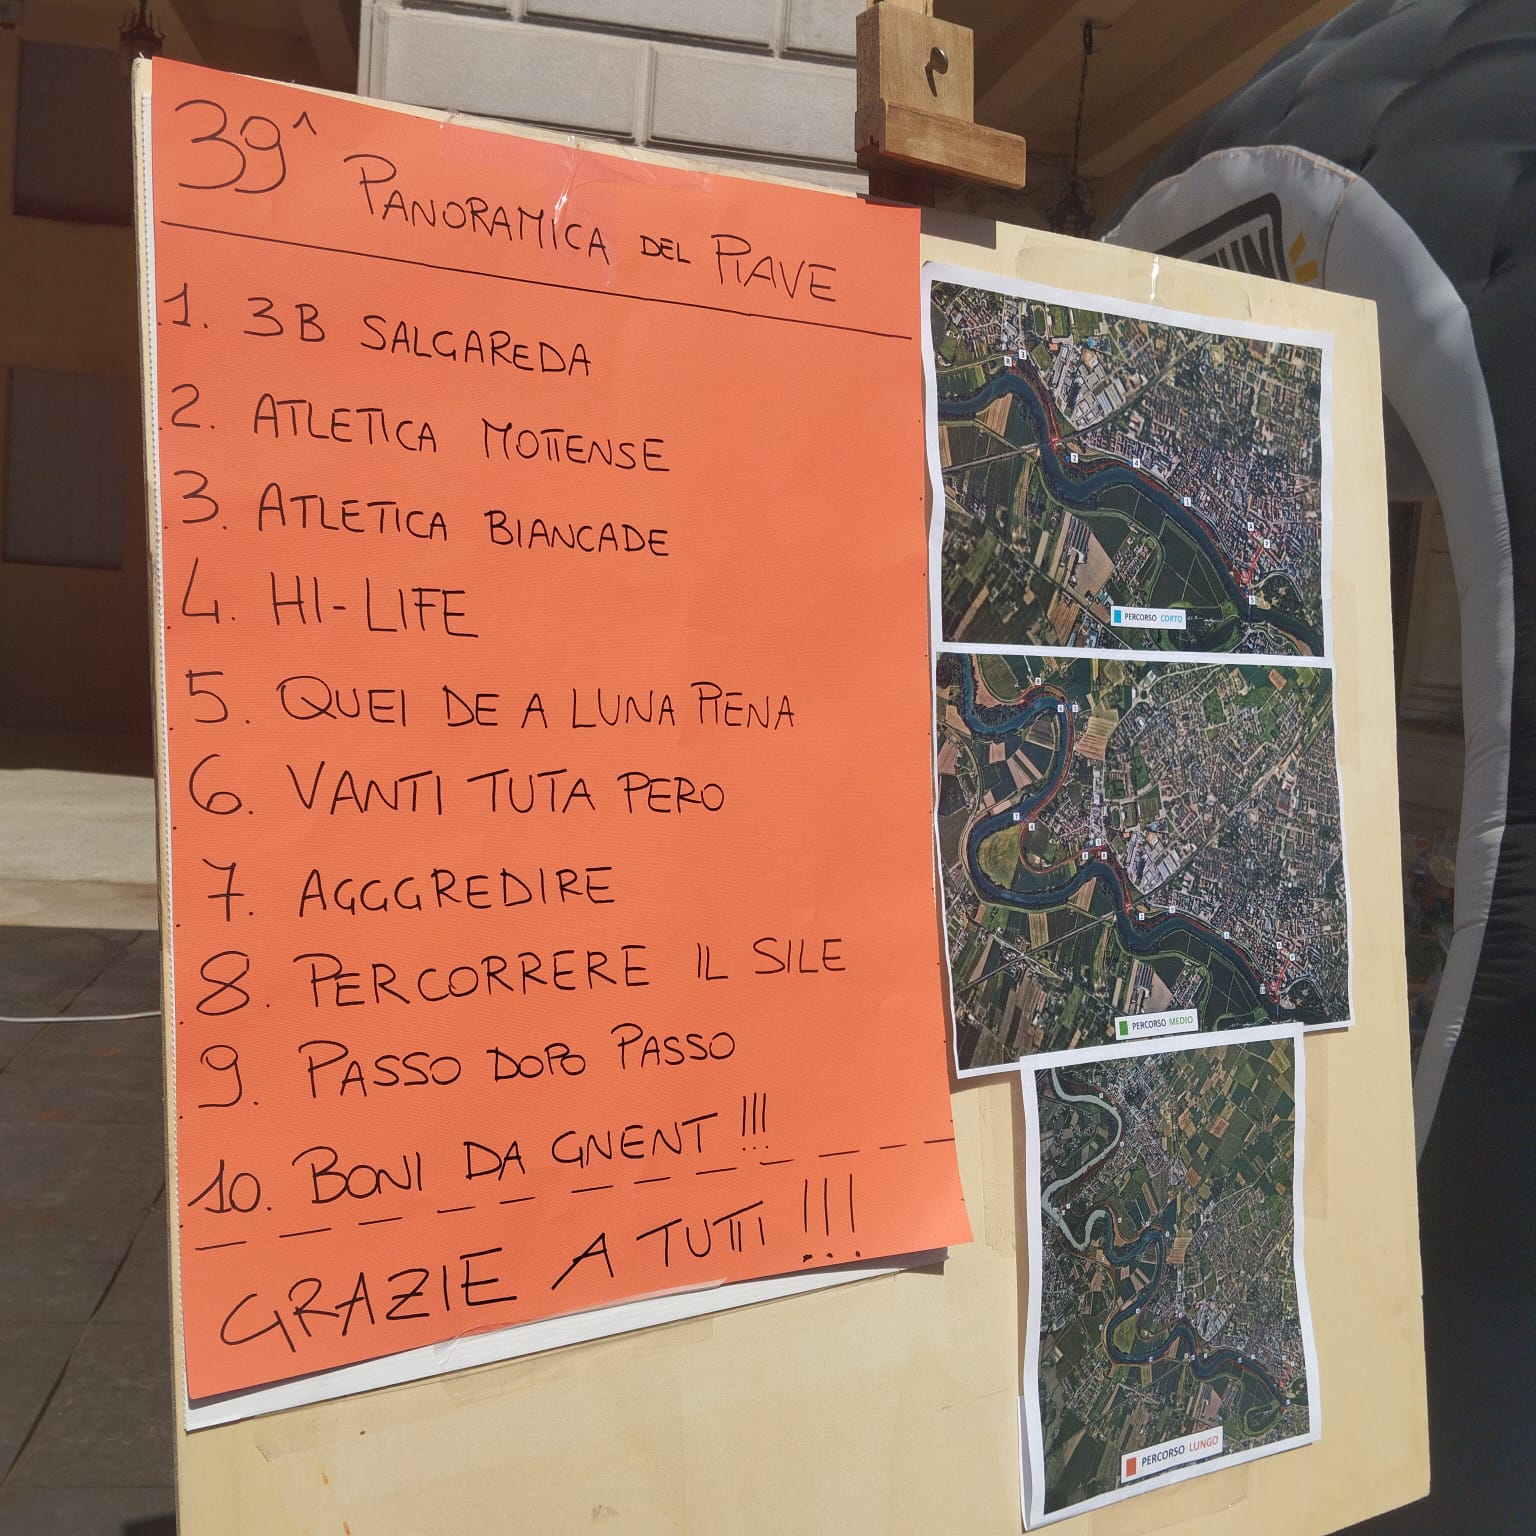 39^ PANORAMICA DEL PIAVE
1. 3B SALGAREDA
2. ATLETICA MOTTENSE
3. ATLETICA BIANCADE
4. HI-LIFE
5. QUEI DE A LUNA PIENA
6. VANTI TUTA PERO
7. AGGGREDIRE
8. PERCORRERE IL SILE
9. PASSO DOPO PASSO
10. BONI DA GNENT !!!
GRAZIE A TUTTI !!!
PERCORSO CORTO
PERCORSO MEDIO
PERCORSO LUNGO